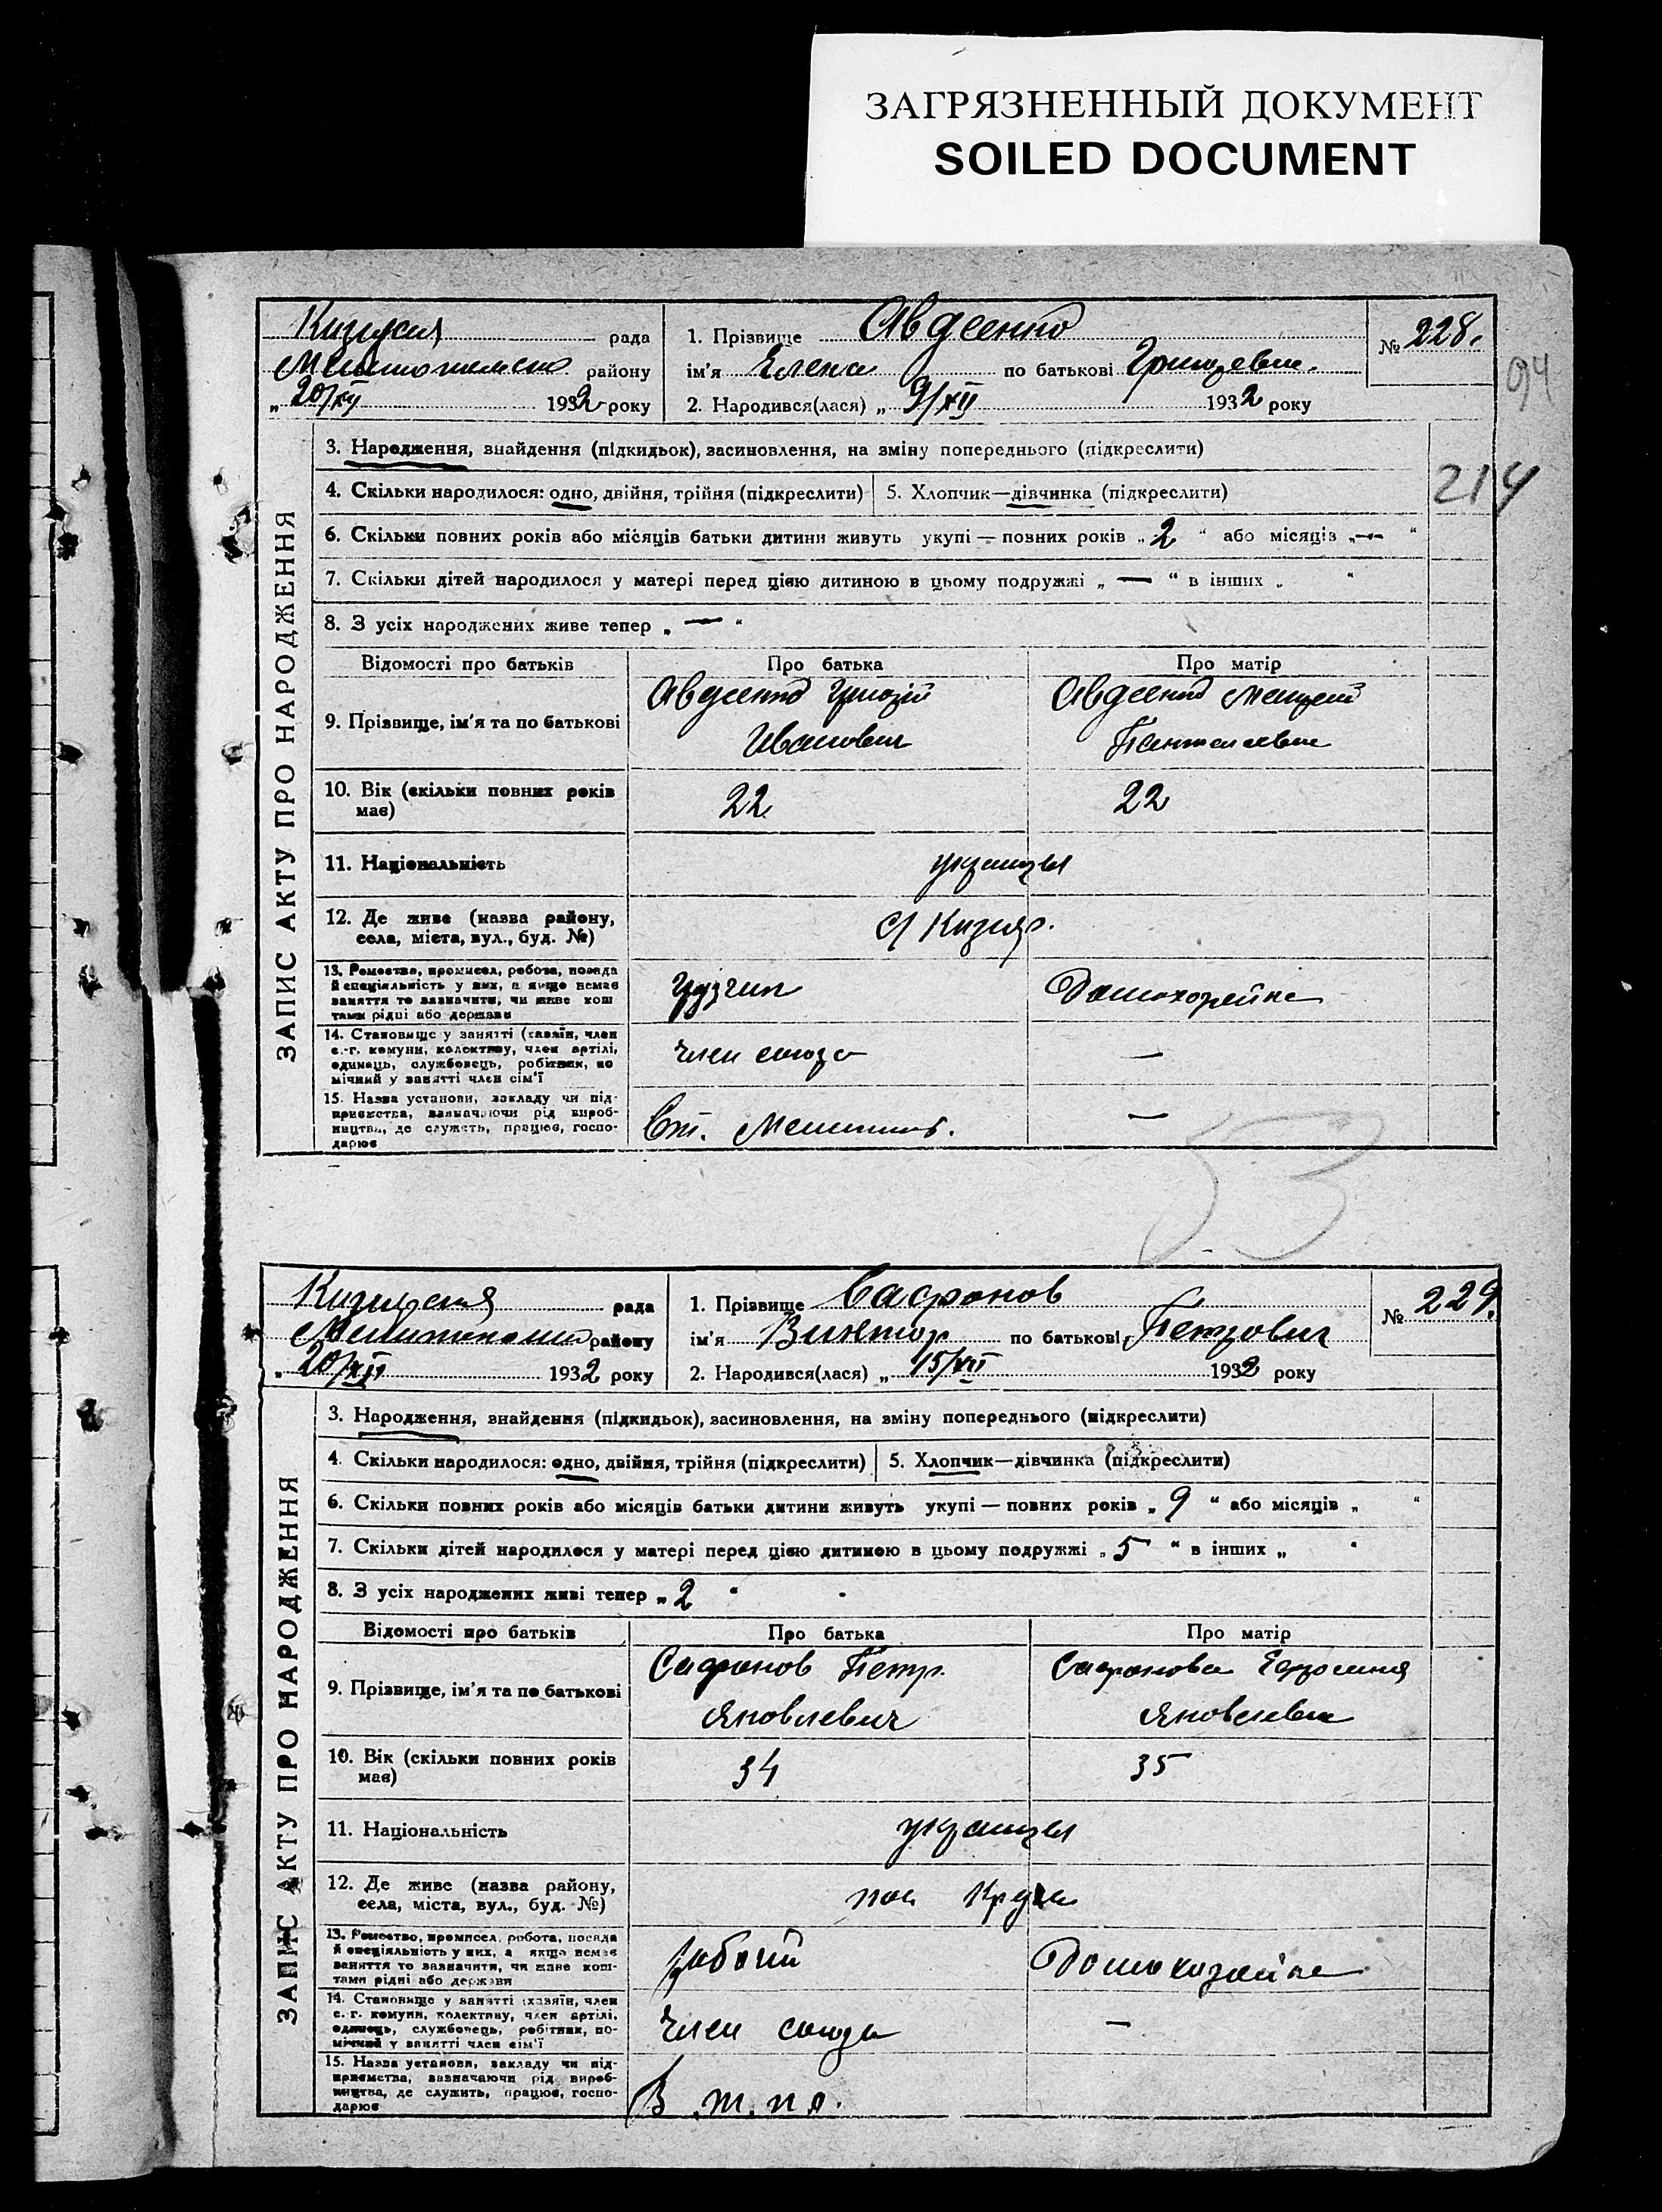 ЗАГРЯЗНЕННЫЙ ДОКУМЕНТ
SOILED DOCUMENT
94
214
ЗАПИС АКТУ ПРО НАРОДЖЕННЯ
рада
району
„ 20/XII 1932 року
1. Прізвище Авдеенко
ім'я Елена по батькові
2. Народився(лася) „ 9/XII 1932 року
№ 228.
3. Народження, знайдення (підкидьок), засиновлення, на зміну попереднього (підкреслити)
4. Скільки народилося: одно, двійня, трійня (підкреслити)
5. Хлопчик—дівчинка (підкреслити)
6. Скільки повних років або місяців батьки дитини живуть укупі — повних років „ 2 “ або місяців „ — “
7. Скільки дітей народилося у матері перед цією дитиною в цьому подружжі „ — “ в інших „ “
8. З усіх народжених живе тепер „ — “
Відомості про батьків
Про батька
Про матір
9. Прізвище, ім'я та по батькові
Авдеенко
Иванович
Авдеенко
10. Вік (скільки повних років
має)
22
22
11. Національність
12. Де живе (назва району,
села, міста, вул., буд. №)
с/ Кизияр.
13. Ремество, промисел, робота, посада
й спеціяльність у них, а якщо немає
заняття то зазначити, чи живе кош
тами рідні або держави
грузчик
Домохозяйка
14. Становище у занятті (хазяїн, член
с.-г. комуни, колективу, член артілі,
одинець, службовець, робітник, по
мічний у занятті член сім'ї
член союза
—
15. Назва установи, закладу чи під-
приємства, зазначаючи рід вироб-
ництва, де служить, працює, госпо-
дарює
Ст.
—
53
ЗАПИС АКТУ ПРО НАРОДЖЕННЯ
рада
району
„ 20/XII 1932 року
1. Прізвище Сафонов
ім'я Виктор по батькові Петрович
2. Народився(лася) „ 15/XII 1932 року
№ 229.
3. Народження, знайдення (підкидьок), засиновлення, на зміну попереднього (підкреслити)
4. Скільки народилося: одно, двійня, трійня (підкреслити)
5. Хлопчик—дівчинка (підкреслити)
6. Скільки повних років або місяців батьки дитини живуть укупі — повних років „ 9 “ або місяців „ “
7. Скільки дітей народилося у матері перед цією дитиною в цьому подружжі „ 5 “ в інших „ “
8. З усіх народжених живі тепер „ 2 “
Відомості про батьків
Про батька
Про матір
9. Прізвище, ім'я та по батькові
Сафонов Петр.
Яковлевич
Сафонова
10. Вік (скільки повних років
має)
34
35
11. Національність
12. Де живе (назва району,
села, міста, вул., буд. №)
13. Ремество, промисел, робота, посада
й спеціяльність у них, а якщо немає
заняття то зазначити, чи живе кош-
тами рідні або держави
рабочий
Домохозяйка
14. Становище у занятті (хазяїн, член
с.-г. комуни, колективу, член артілі,
одинець, службовець, робітник, по-
мічний у занятті член сім'ї
член союза
—
15. Назва установи, закладу чи під-
приємства, зазначаючи рід вироб-
ництва, де служить, працює, госпо-
дарює